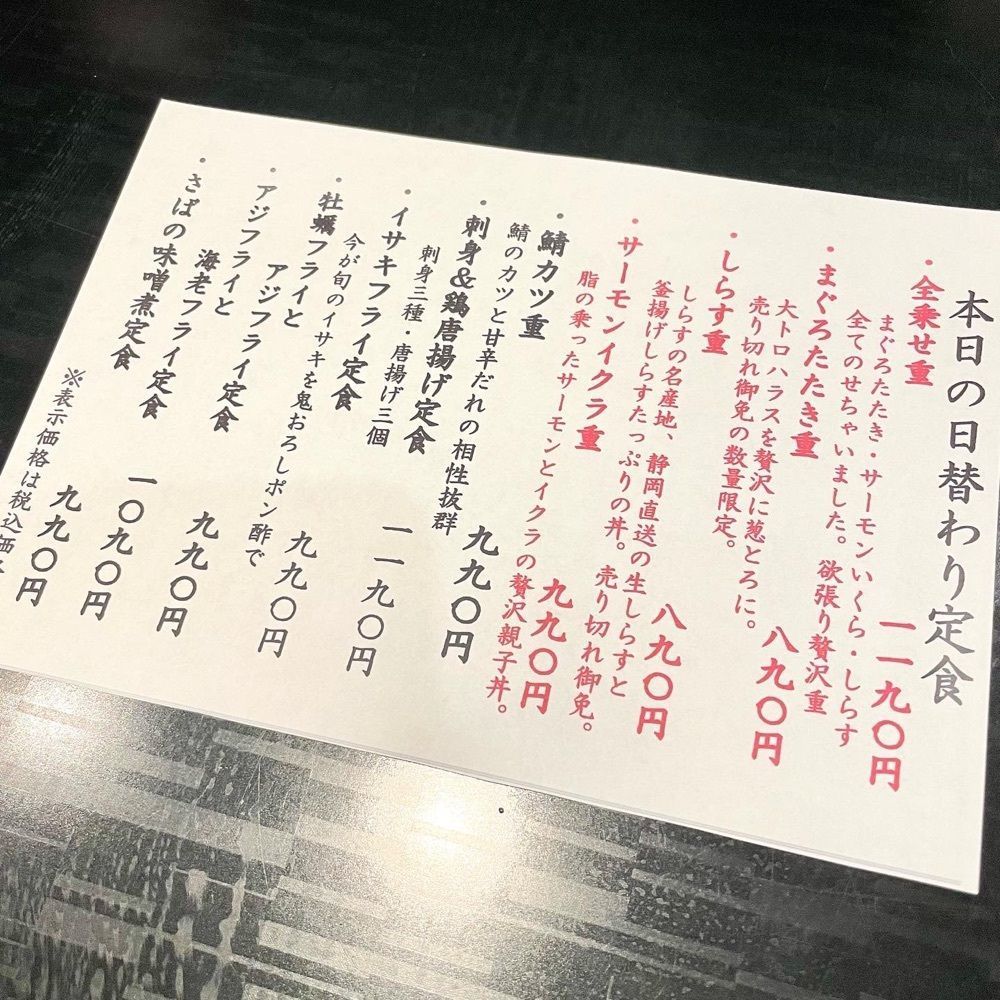 本日の日替わり定食
・全乗せ重 一一九〇円
まぐろたたき・サーモンいくら・しらす
全てのせちゃいました。欲張り贅沢重
・まぐろたたき重 八九〇円
大トロハラスを贅沢に葱とろに。
売り切れ御免の数量限定。
・しらす重 八九〇円
しらすの名産地、静岡直送の生しらすと
釜揚げしらすたっぷりの丼。売り切れ御免。
・サーモンイクラ重 九九〇円
脂の乗ったサーモンとイクラの贅沢親子丼。
・鯖カツ重 九九〇円
鯖のカツと甘辛だれの相性抜群
・刺身&鶏唐揚げ定食 一一九〇円
刺身三種・唐揚げ三個
・イサキフライ定食 九九〇円
今が旬のイサキを鬼おろしポン酢で
・牡蠣フライと
アジフライ定食 九九〇円
・アジフライと
海老フライ定食 一〇九〇円
・さばの味噌煮定食 九九〇円
※表示価格は税込価